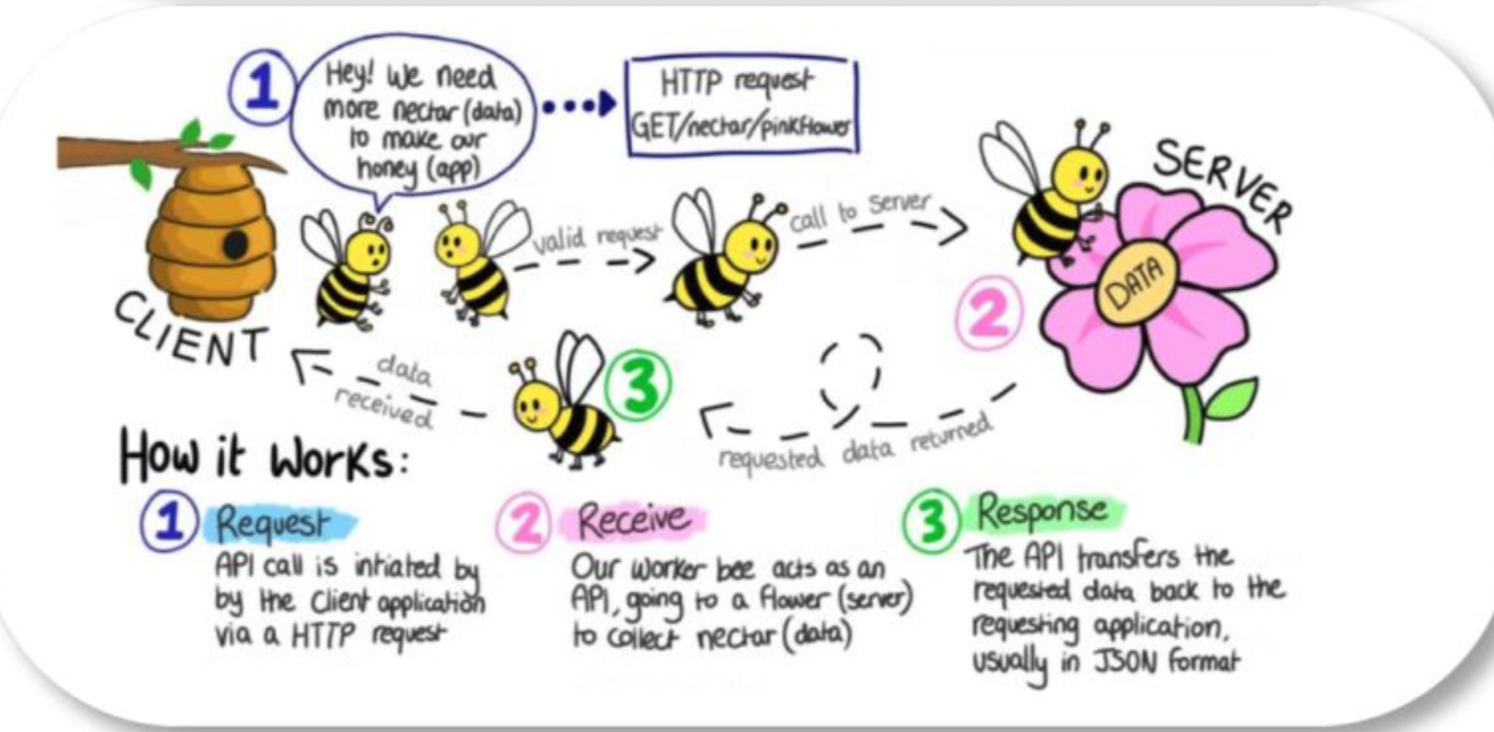 1
Hey! We need
more nectar (data)
to make our
honey (app)
HTTP request
GET/nectar/pinkflower
SERVER
valid request
call to server
DATA
CLIENT
2
data
received
3
requested data returned
How it Works:
1 Request
API call is intiated by
by the Client application
via a HTTP request
2 Receive
Our worker bee acts as an
API, going to a flower (server)
to collect nectar (data)
3 Response
The API transfers the
requested data back to the
requesting application,
usually in JSON format